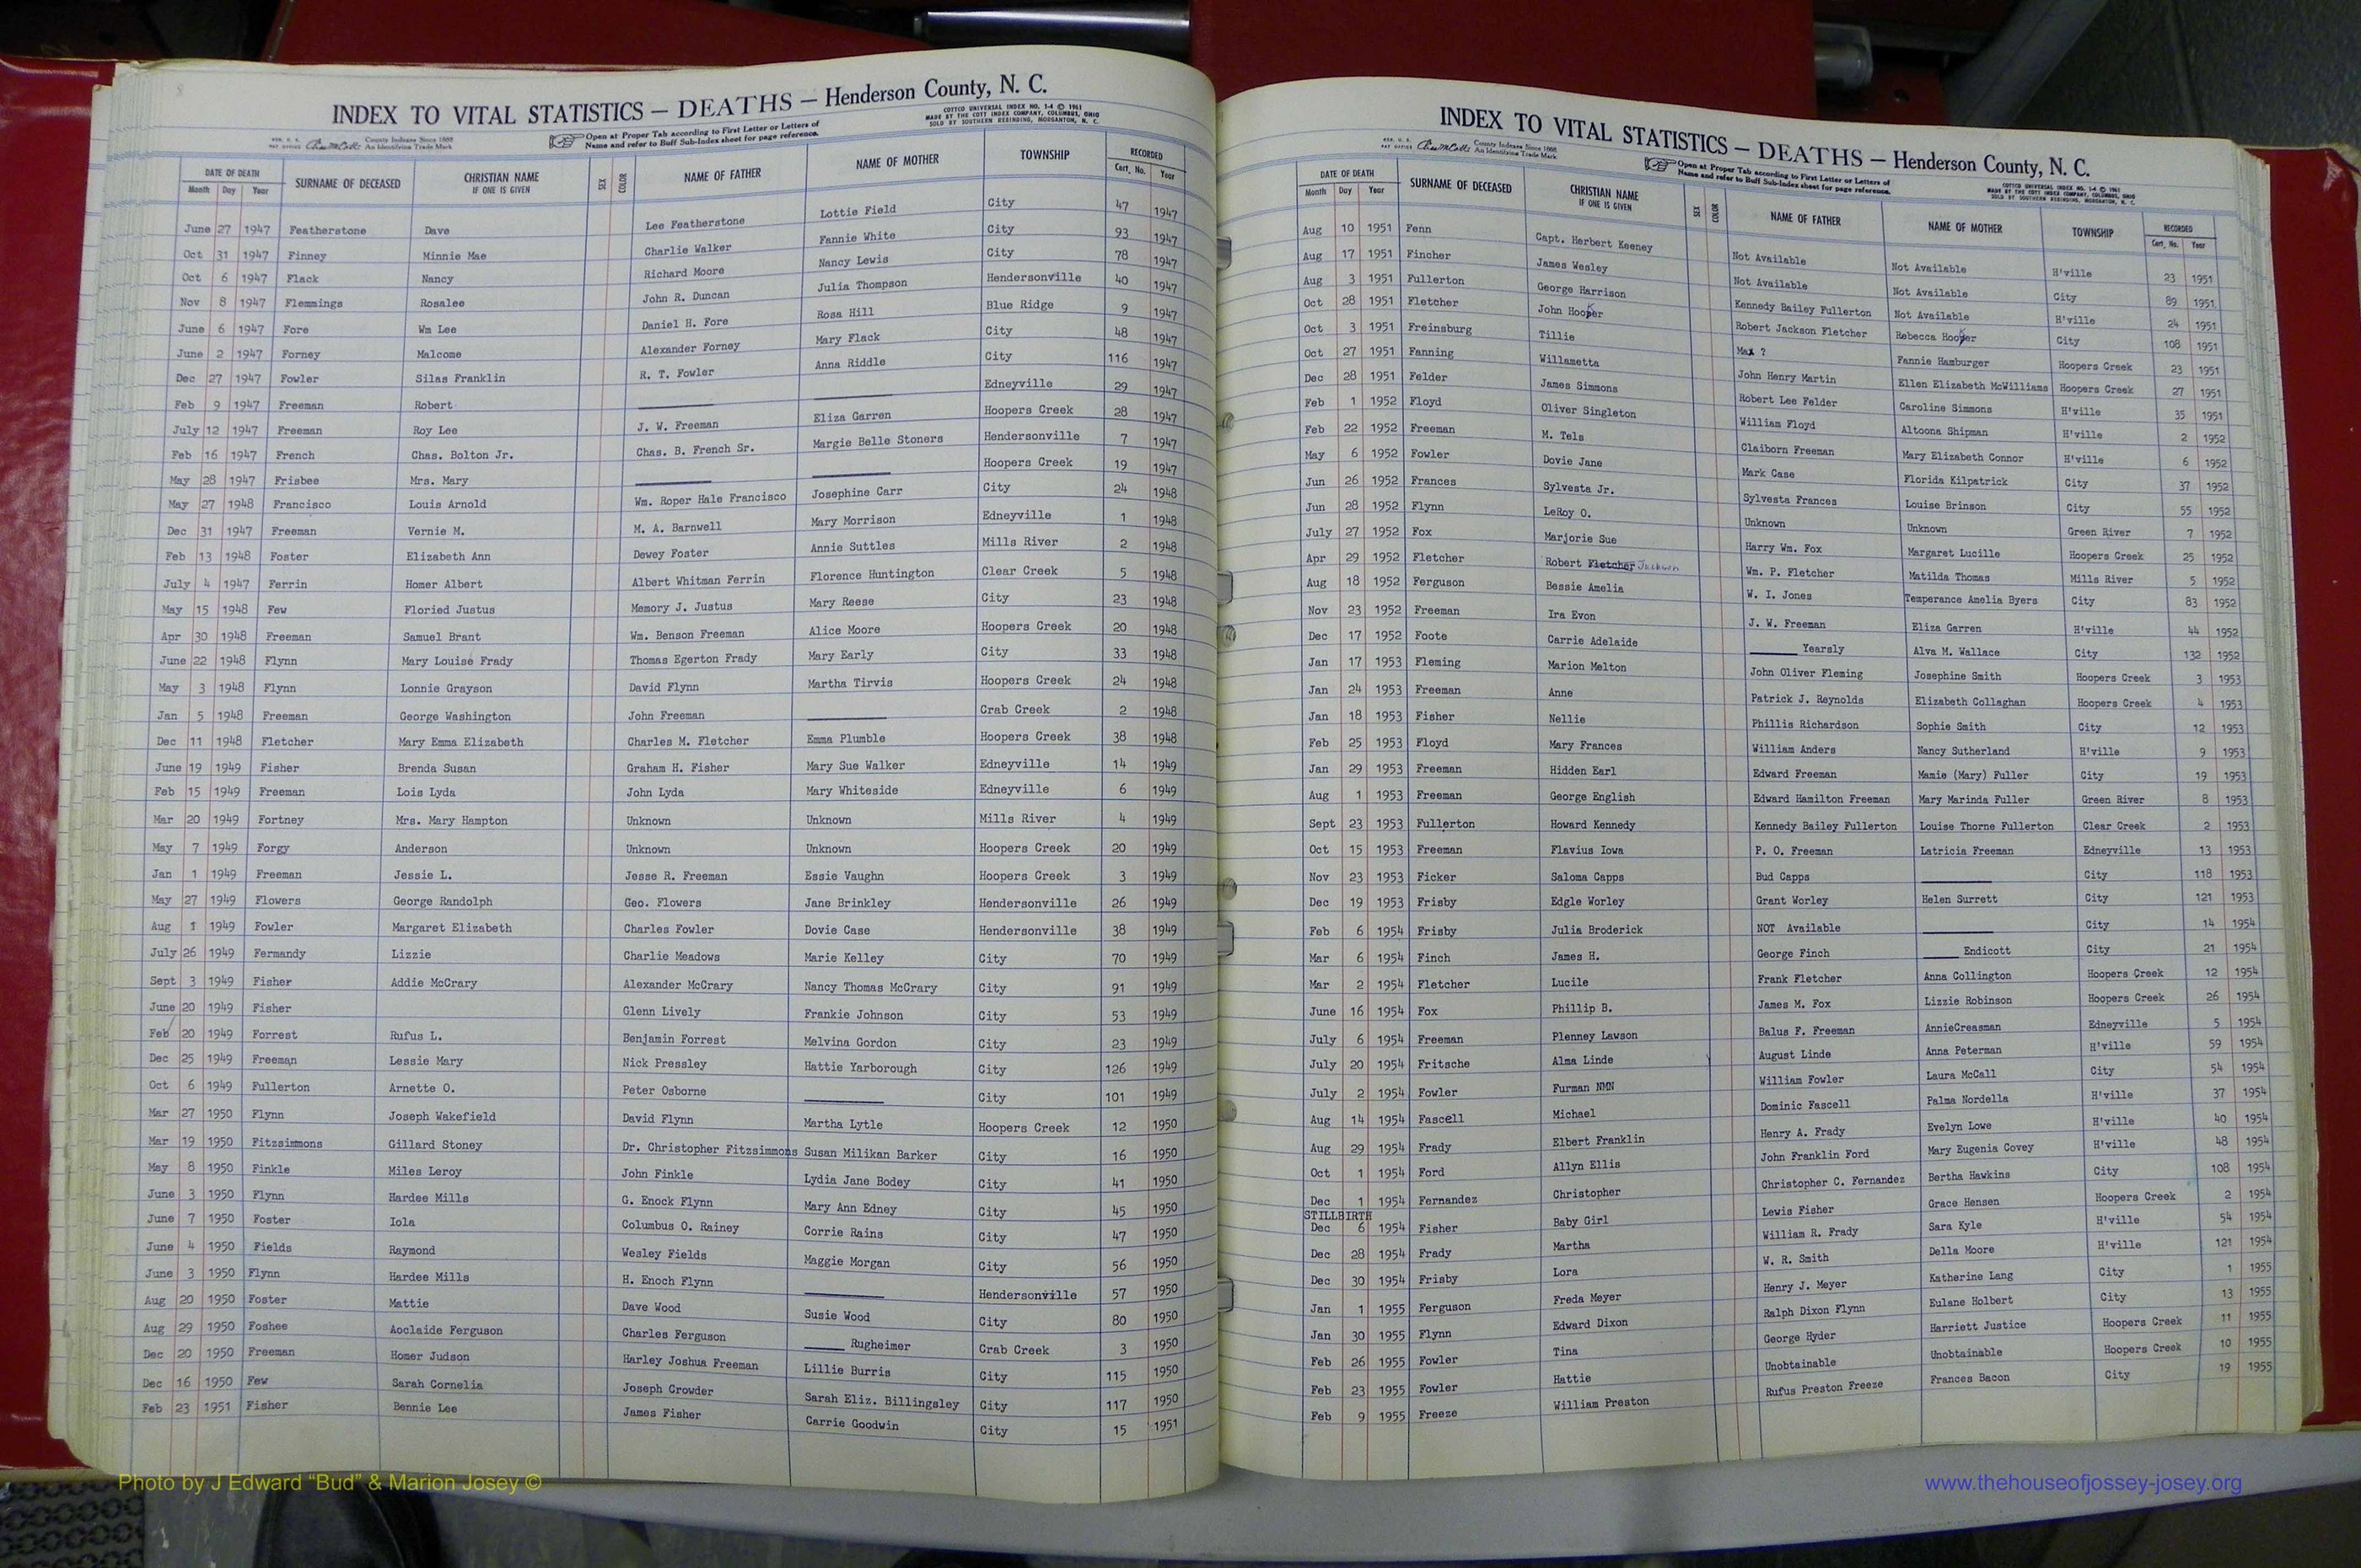 INDEX TO VITAL STATISTICS — DEATHS — Henderson County, N. C.
County Indexes Since 1888 An Identifying Trade Mark
Open at Proper Tab according to First Letter or Letters of Name and refer to Buff Sub-Index sheet for page reference.
COTTCO UNIVERSAL INDEX NO. 1-4 © 1961
MADE BY THE COTT INDEX COMPANY, COLUMBUS, OHIO
SOLD BY SOUTHERN REBINDING, MORGANTON, N. C.
DATE OF DEATH Month Day Year SURNAME OF DECEASED CHRISTIAN NAME IF ONE IS GIVEN SEX COLOR NAME OF FATHER NAME OF MOTHER TOWNSHIP RECORDED Cert. No. Year
June 27 1947 Featherstone Dave Lee Featherstone Lottie Field City 47 1947
Oct 31 1947 Finney Minnie Mae Charlie Walker Fannie White City 93 1947
Oct 6 1947 Flack Nancy Richard Moore Nancy Lewis City 78 1947
Nov 8 1947 Flemmings Rosalee John R. Duncan Julia Thompson Hendersonville 40 1947
June 6 1947 Fore Wm Lee Daniel H. Fore Rosa Hill Blue Ridge 9 1947
June 2 1947 Forney Malcome Alexander Forney Mary Flack City 48 1947
Dec 27 1947 Fowler Silas Franklin R. T. Fowler Anna Riddle City 116 1947
Feb 9 1947 Freeman Robert Edneyville 29 1947
July 12 1947 Freeman Roy Lee J. W. Freeman Eliza Garren Hoopers Creek 28 1947
Feb 16 1947 French Chas. Bolton Jr. Chas. B. French Sr. Margie Belle Stoners Hendersonville 7 1947
May 28 1947 Frisbee Mrs. Mary Hoopers Creek 19 1947
May 27 1948 Francisco Louis Arnold Wm. Roper Hale Francisco Josephine Carr City 24 1948
Dec 31 1947 Freeman Vernie M. M. A. Barnwell Mary Morrison Edneyville 1 1948
Feb 13 1948 Foster Elizabeth Ann Dewey Foster Annie Suttles Mills River 2 1948
July 4 1947 Ferrin Homer Albert Albert Whitman Ferrin Florence Huntington Clear Creek 5 1948
May 15 1948 Few Floried Justus Memory J. Justus Mary Reese City 23 1948
Apr 30 1948 Freeman Samuel Brant Wm. Benson Freeman Alice Moore Hoopers Creek 20 1948
June 22 1948 Flynn Mary Louise Frady Thomas Egerton Frady Mary Early City 33 1948
May 3 1948 Flynn Lonnie Grayson David Flynn Martha Tirvis Hoopers Creek 24 1948
Jan 5 1948 Freeman George Washington John Freeman Crab Creek 2 1948
Dec 11 1948 Fletcher Mary Emma Elizabeth Charles M. Fletcher Emma Plumble Hoopers Creek 38 1948
June 19 1949 Fisher Brenda Susan Graham H. Fisher Mary Sue Walker Edneyville 14 1949
Feb 15 1949 Freeman Lois Lyda John Lyda Mary Whiteside Edneyville 6 1949
Mar 20 1949 Fortney Mrs. Mary Hampton Unknown Unknown Mills River 4 1949
May 7 1949 Forgy Anderson Unknown Unknown Hoopers Creek 20 1949
Jan 1 1949 Freeman Jessie L. Jesse R. Freeman Essie Vaughn Hoopers Creek 3 1949
May 27 1949 Flowers George Randolph Geo. Flowers Jane Brinkley Hendersonville 26 1949
Aug 1 1949 Fowler Margaret Elizabeth Charles Fowler Dovie Case Hendersonville 38 1949
July 26 1949 Fermandy Lizzie Charlie Meadows Marie Kelley City 70 1949
Sept 3 1949 Fisher Addie McCrary Alexander McCrary Nancy Thomas McCrary City 91 1949
June 20 1949 Fisher Glenn Lively Frankie Johnson City 53 1949
Feb 20 1949 Forrest Rufus L. Benjamin Forrest Melvina Gordon City 23 1949
Dec 25 1949 Freeman Lessie Mary Nick Pressley Hattie Yarborough City 126 1949
Oct 6 1949 Fullerton Arnette O. Peter Osborne City 101 1949
Mar 27 1950 Flynn Joseph Wakefield David Flynn Martha Lytle Hoopers Creek 12 1950
Mar 19 1950 Fitzsimmons Gillard Stoney Dr. Christopher Fitzsimmons Susan Milikan Barker City 16 1950
May 8 1950 Finkle Miles Leroy John Finkle Lydia Jane Bodey City 41 1950
June 3 1950 Flynn Hardee Mills G. Enock Flynn Mary Ann Edney City 45 1950
June 7 1950 Foster Iola Columbus O. Rainey Corrie Rains City 47 1950
June 4 1950 Fields Raymond Wesley Fields Maggie Morgan City 56 1950
June 3 1950 Flynn Hardee Mills H. Enoch Flynn Hendersonville 57 1950
Aug 20 1950 Foster Mattie Dave Wood Susie Wood City 80 1950
Aug 29 1950 Foshee Aoclaide Ferguson Charles Ferguson Rugheimer Crab Creek 3 1950
Dec 20 1950 Freeman Homer Judson Harley Joshua Freeman Lillie Burris City 115 1950
Dec 16 1950 Few Sarah Cornelia Joseph Crowder Sarah Eliz. Billingsley City 117 1950
Feb 23 1951 Fisher Bennie Lee James Fisher Carrie Goodwin City 15 1951
INDEX TO VITAL STATISTICS — DEATHS — Henderson County, N. C.
County Indexes Since 1888 An Identifying Trade Mark
Open at Proper Tab according to First Letter or Letters of Name and refer to Buff Sub-Index sheet for page reference.
COTTCO UNIVERSAL INDEX NO. 1-4 © 1961
MADE BY THE COTT INDEX COMPANY, COLUMBUS, OHIO
SOLD BY SOUTHERN REBINDING, MORGANTON, N. C.
DATE OF DEATH Month Day Year SURNAME OF DECEASED CHRISTIAN NAME IF ONE IS GIVEN SEX COLOR NAME OF FATHER NAME OF MOTHER TOWNSHIP RECORDED Cert. No. Year
Aug 10 1951 Fenn Capt. Herbert Keeney Not Available Not Available H'ville 23 1951
Aug 17 1951 Fincher James Wesley Not Available Not Available City 89 1951
Aug 3 1951 Fullerton George Harrison Kennedy Bailey Fullerton Not Available H'ville 24 1951
Oct 28 1951 Fletcher John Hooper Robert Jackson Fletcher Rebecca Hooper City 108 1951
Oct 3 1951 Freinsburg Tillie Max ? Fannie Hamburger Hoopers Creek 23 1951
Oct 27 1951 Fanning Willametta John Henry Martin Ellen Elizabeth McWilliams Hoopers Creek 27 1951
Dec 28 1951 Felder James Simmons Robert Lee Felder Caroline Simmons H'ville 35 1951
Feb 1 1952 Floyd Oliver Singleton William Floyd Altoona Shipman H'ville 2 1952
Feb 22 1952 Freeman M. Tels Claiborn Freeman Mary Elizabeth Connor H'ville 6 1952
May 6 1952 Fowler Dovie Jane Mark Case Florida Kilpatrick City 37 1952
Jun 26 1952 Frances Sylvesta Jr. Sylvesta Frances Louise Brinson City 55 1952
Jun 28 1952 Flynn LeRoy O. Unknown Unknown Green River 7 1952
July 27 1952 Fox Marjorie Sue Harry Wm. Fox Margaret Lucille Hoopers Creek 25 1952
Apr 29 1952 Fletcher Robert Fletcher Jackson Wm. P. Fletcher Matilda Thomas Mills River 5 1952
Aug 18 1952 Ferguson Bessie Amelia W. I. Jones Temperance Amelia Byers City 83 1952
Nov 23 1952 Freeman Ira Evon J. W. Freeman Eliza Garren H'ville 44 1952
Dec 17 1952 Foote Carrie Adelaide Yearsly Alva M. Wallace City 132 1952
Jan 17 1953 Fleming Marion Melton John Oliver Fleming Josephine Smith Hoopers Creek 3 1953
Jan 24 1953 Freeman Anne Patrick J. Reynolds Elizabeth Collaghan Hoopers Creek 4 1953
Jan 18 1953 Fisher Nellie Phillis Richardson Sophie Smith City 12 1953
Feb 25 1953 Floyd Mary Frances William Anders Nancy Sutherland H'ville 9 1953
Jan 29 1953 Freeman Hidden Earl Edward Freeman Mamie (Mary) Fuller City 19 1953
Aug 1 1953 Freeman George English Edward Hamilton Freeman Mary Marinda Fuller Green River 8 1953
Sept 23 1953 Fullerton Howard Kennedy Kennedy Bailey Fullerton Louise Thorne Fullerton Clear Creek 2 1953
Oct 15 1953 Freeman Flavius Iowa P. O. Freeman Latricia Freeman Edneyville 13 1953
Nov 23 1953 Ficker Saloma Capps Bud Capps City 118 1953
Dec 19 1953 Frisby Edgle Worley Grant Worley Helen Surrett City 121 1953
Feb 6 1954 Frisby Julia Broderick NOT Available City 14 1954
Mar 6 1954 Finch James H. George Finch Endicott City 21 1954
Mar 2 1954 Fletcher Lucile Frank Fletcher Anna Collington Hoopers Creek 12 1954
June 16 1954 Fox Phillip B. James M. Fox Lizzie Robinson Hoopers Creek 26 1954
July 6 1954 Freeman Plenney Lawson Balus F. Freeman AnnieCreasman Edneyville 5 1954
July 20 1954 Fritsche Alma Linde August Linde Anna Peterman H'ville 59 1954
July 2 1954 Fowler Furman NMN William Fowler Laura McCall City 54 1954
Aug 14 1954 Fascell Michael Dominic Fascell Palma Nordella H'ville 37 1954
Aug 29 1954 Frady Elbert Franklin Henry A. Frady Evelyn Lowe H'ville 40 1954
Oct 1 1954 Ford Allyn Ellis John Franklin Ford Mary Eugenia Covey H'ville 48 1954
Dec 1 1954 Fernandez Christopher Christopher C. Fernandez Bertha Hawkins City 108 1954
STILLBIRTH
Dec 6 1954 Fisher Baby Girl Lewis Fisher Grace Hensen Hoopers Creek 2 1954
Dec 28 1954 Frady Martha William R. Frady Sara Kyle H'ville 54 1954
Dec 30 1954 Frisby Lora W. R. Smith Della Moore H'ville 121 1954
Jan 1 1955 Ferguson Freda Meyer Henry J. Meyer Katherine Lang City 1 1955
Jan 30 1955 Flynn Edward Dixon Ralph Dixon Flynn Eulane Holbert City 13 1955
Feb 26 1955 Fowler Tina George Hyder Harriett Justice Hoopers Creek 11 1955
Feb 23 1955 Fowler Hattie Unobtainable Unobtainable Hoopers Creek 10 1955
Feb 9 1955 Freeze William Preston Rufus Preston Freeze Frances Bacon City 19 1955
Photo by J Edward “Bud” & Marion Josey ©
www.thehouseofjossey-josey.org